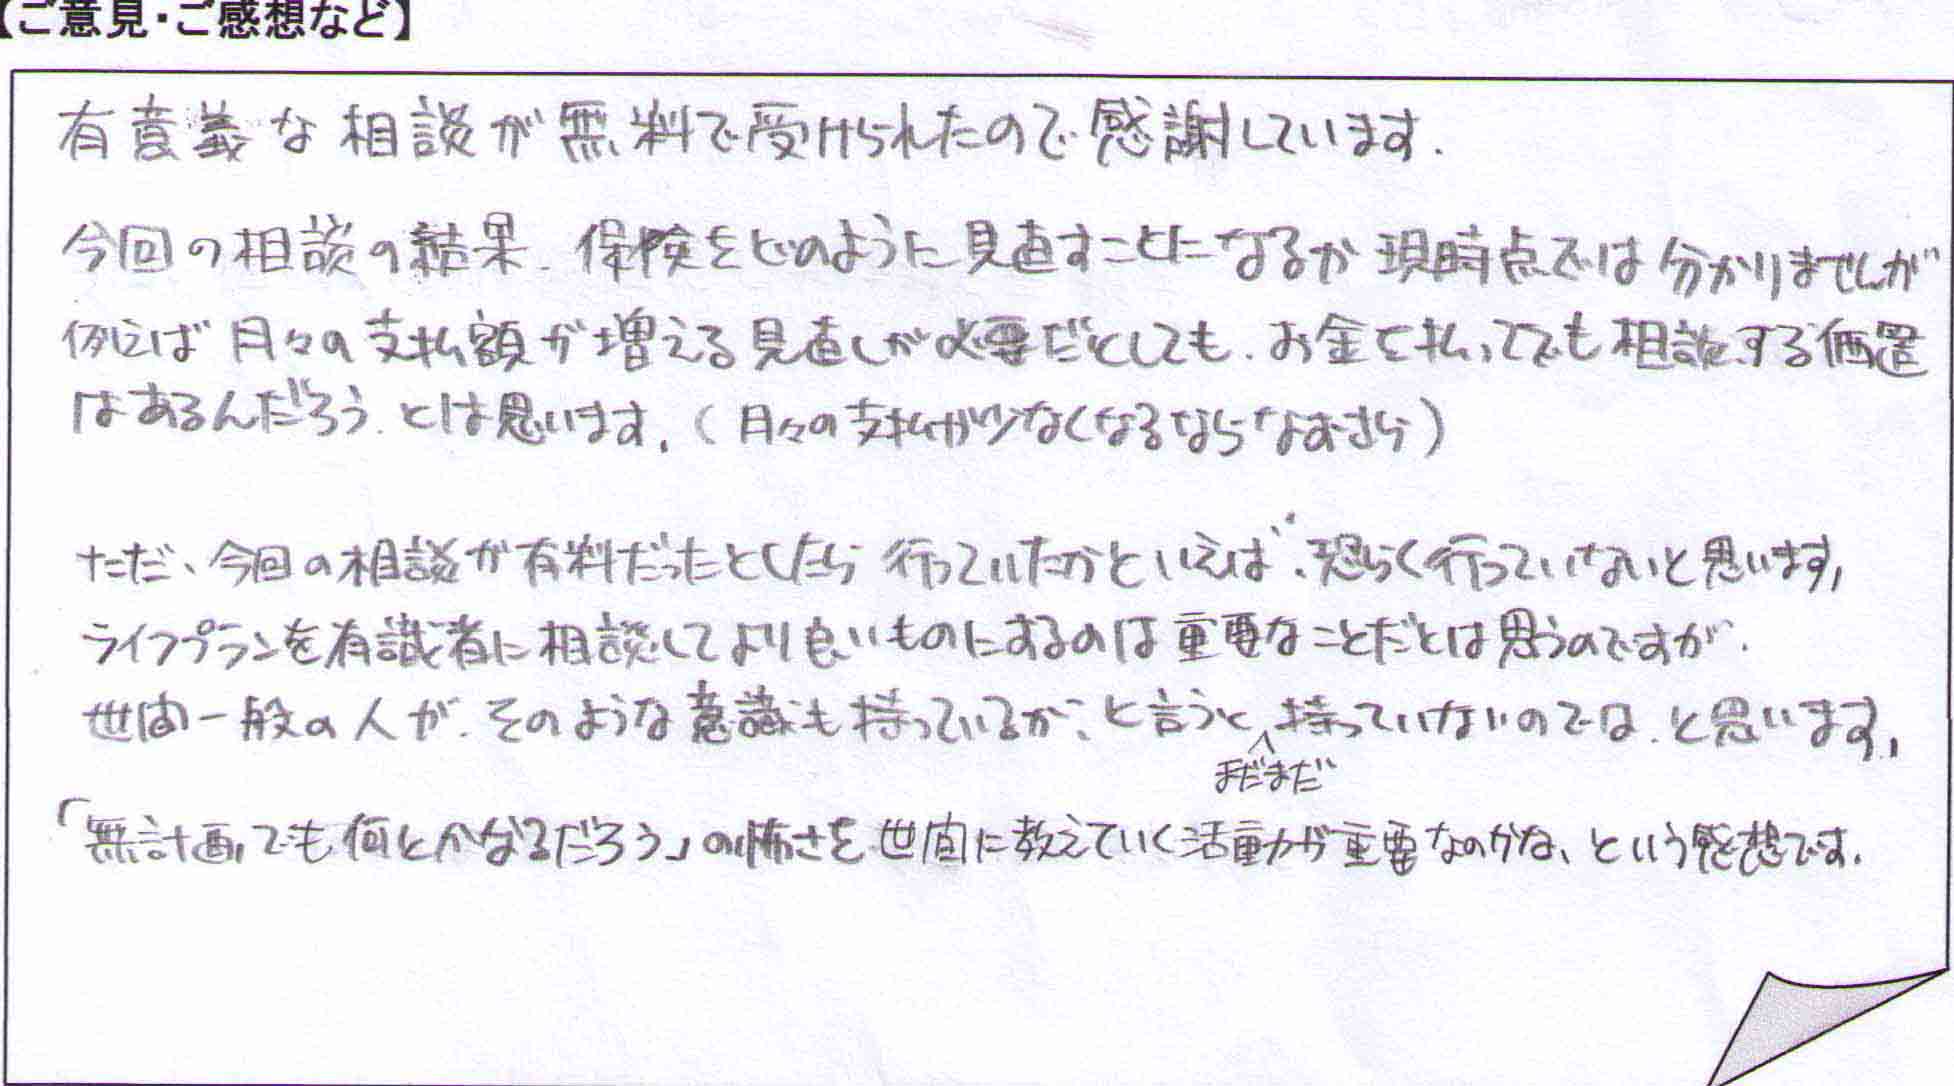 【ご意見・ご感想など】
有意義な相談が無料で受けられたので感謝しています.
今回の相談の結果、保険をどのように見直すことになるか現時点では分かりませんが
例えば月々の支払額が増える見直しが必要だとしても、お金を払ってでも相談する価値
はあるんだろう、とは思います。(月々の支払が少なくなるならなおさら)
ただ、今回の相談が有料だったとしたら行っていたかといえば、恐らく行っていないと思います。
ライフプランを有識者に相談してより良いものにするのは重要なことだとは思うのですが、
世間一般の人が、そのような意識も持っているか、と言うとまだまだ持っていないのでは、と思います。
「無計画でも何とかなるだろう」の怖さを世間に教えていく活動が重要なのかな、という感想です.